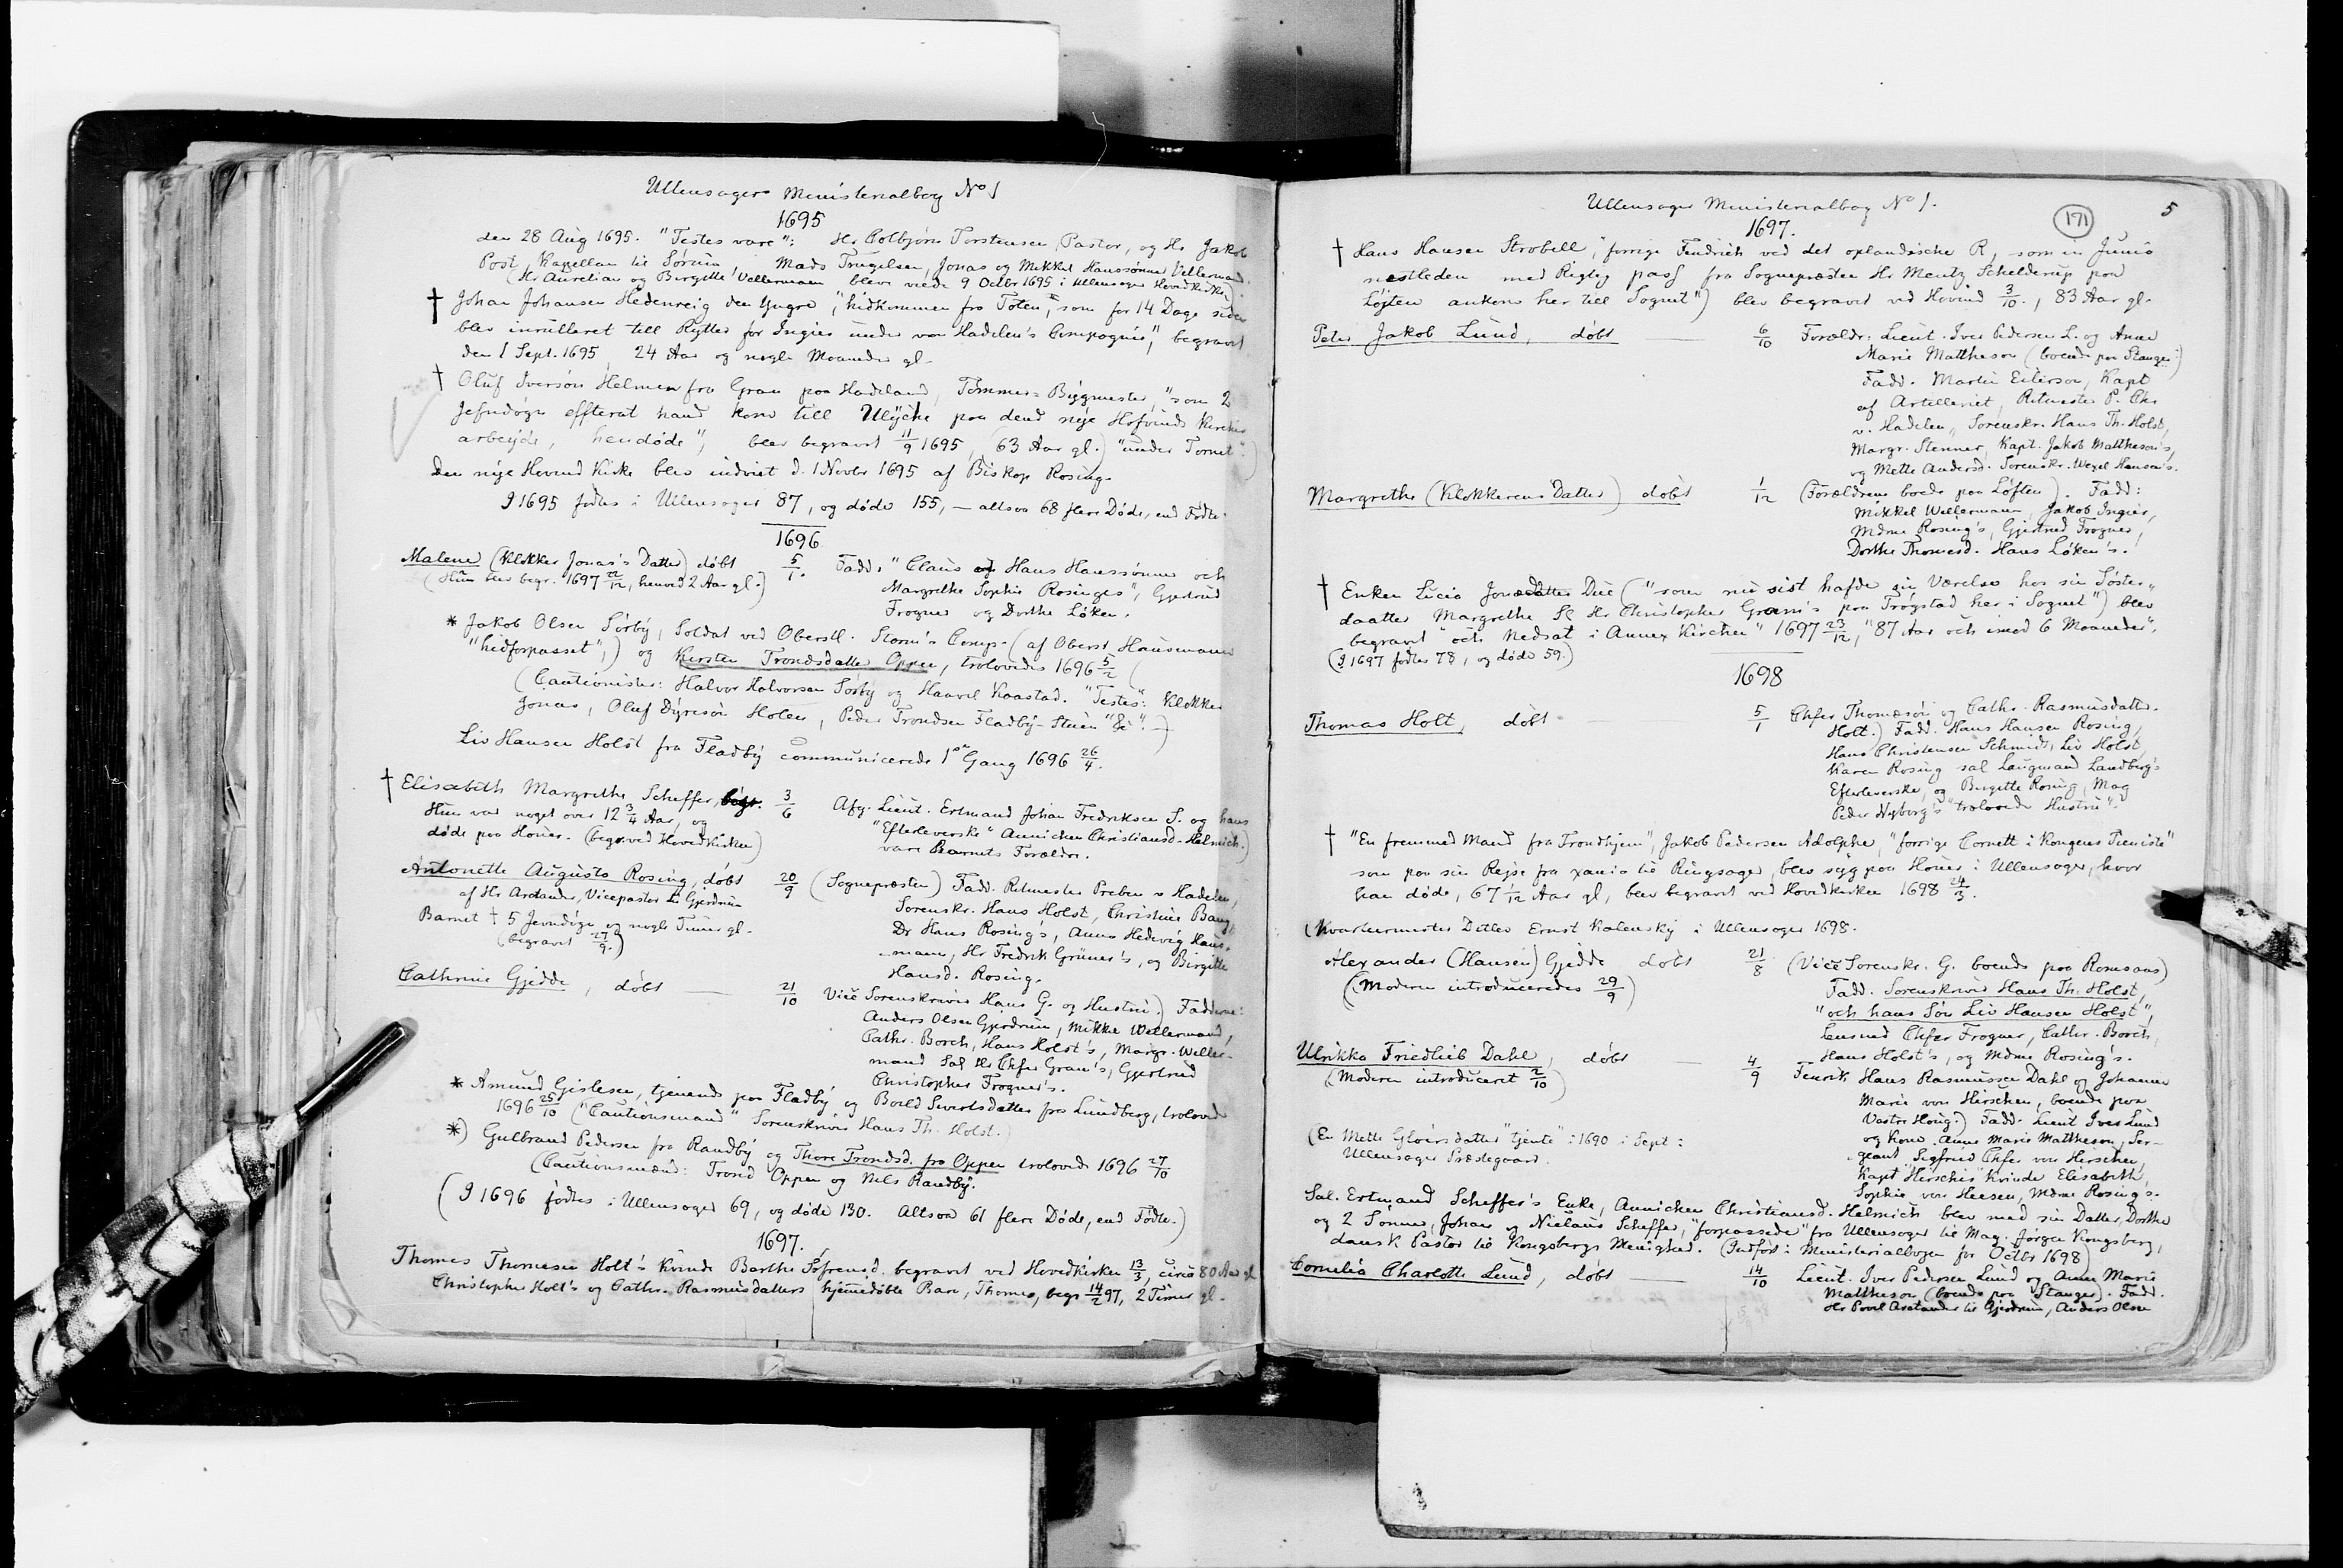 Ullensager Ministerialbog No 1
1695
den 28 Aug 1695. "Testes vare": Hr Colbjørn Torstensen, Pastor, og Hr Jakob
Post, Kapellan til Sørum Mads Trugelsen, Jonas og Mikkel Hanssønner Vellermand.
(Hr Aurelian og Birgitte Vellermann bleve viede 9 Octbr 1695 i Ullensager Hovedkirke.
† Johan Johansen Hedenreig den Yngre, "hidkommen fra Toten", som for 14 Dage siden
blev inrulleret till Rytter for Ingier under von Hadelen's Compagnie", begravet
den 1 Sept. 1695 24 Aar og nogle Maaneder gl.
† Oluf Iversøn Helmen fra Gran paa Hadeland, Tømmer-Bygmester, "som 2
Jefndøgn effterat hand kom till Ulÿcke paa dend nÿe Hofvinds Kirches
arbeÿde, hendøde", blev begravet 11/9 1695, 63 Aar gl.) "under Tornet".)
Den nÿe Hovind Kirke blev indviet d. 1 Novbr 1695 af Biskop Rosing.
I 1695 fødtes i Ullensager 87, og døde 155, — altsaa 68 flere Døde, end Fødte.
1696
Malene (Klokker Jonas's Datter) døbt 5/1. Fadd. "Claus og Hans Hanssønner och
(Hun blev begr. 1697 22/12, henved 2 Aar gl.) Margrethe Sophie Rosinges", Gjertrud
Frogner og Dorthe Løken.
* Jakob Olsen Sørby, Soldat ved Oberstl. Storm's Comp. (af Oberst Hausmann
"hidforpasset",) og Kirsten Trondsdatter Oppen, trolovedes 1696 5/2
(Cautionister: Halvor Halvorsen Sørby og Haavel Kaastad. "Testes": Klokker
Jonas, Oluf Dÿresøn Holen, Peder Trondsen Fladbÿ-Stuen "&c". )
Liv Hansen Holst fra Fladbÿ communicerede 1ste Gang 1696 26/4.
† Elisabeth Margrethe Scheffer, begr. 3/6 Afg. Lieut. Ertmand Johan Fredriksen S. og hans
Hun var noget over 12 3/4 Aar, og "Efterleverske" Annichen Christiansd. Helmich.)
døde paa Houer. (begr. ved Hovedkirken) vare Barnets Forældre.
Antonette Augusta Rosing, døbt 20/9 (Sognepræsten) Fadd. Ritmester Preben v Hadelen,
af Hr Arctander, Vicepastor til Gjerdrum Sorenskr. Hans Holst, Christine Bang,
Barnet † 5 Jevndøgn og nogle Timer gl. Dr Hans Rosings, Anna Hedevig Haus-
(begravet 27/9.) mann, Hr Fredrik Grüner's, og Birgitte
Hansd. Rosing.
Cathrine Gjedde, døbt — 21/10 Vice Sorenskriver Hans G. og Hustru.) Fadderne:
Anders Olsen Gjerdrum, Mikkel Wellermand,
Cathr. Borch, Hans Holst's, Margr. Weller-
mand Sal Hr Chfer Gram's, Gjertrud
Christopher Frogner's.
* Amund Gislesen, tjenende paa Fladbÿ og Boeld Sivertsdatter fra Lundberg, trolovede
1696 25/10 ("Cautionsmand" Sorenskriver Hans Th. Holst.)
*) Gulbrand Pedersen fra Randbÿ og Thore Trondsd. fra Oppen trolovede 1696 27/10
(Cautionsmænd: Trond Oppen og Nils Randbÿ.
(I 1696 fødtes i Ullensager 69, og døde 130. Altsaa 61 flere Døde, end Fødte.)
1697.
Thomas Thomasen Holt's Kvinde Barthe Sørensd. begravet ved Hovedkirken 13/3, circa 80 Aar gl
Christopher Holt's og Cathr. Rasmusdatters hjemmedøbte Barn, Thomes, begr 14/2 97, 2 Timer gl.
Ullensager Ministerialbog No 1.
171
5
1697.
† Hans Hansen Strobell, "forrige Fendrich ved det oplandiske R, som in Junio
nestleden med Rigtig pass fra Sognepræsten Hr Mentz Schelderup paa
Løjten ankom her till Sognet") blev begravet ved Hovind 3/10., 83 Aar gl.
Peter Jakob Lund, døbt — 6/10 Forældr: Lieut. Iver Pedersen L. og Anne
Marie Mattheson (boende paa Stanger.)
Fadd. Martin Eilerson, Kapt
af Artilleriet, Ritmester P. Chr
v. Hadelen, Sorenskr. Hans Th. Holst,
Margr. Stenner, Kapt. Jakob Mattheson's,
og Mette Andersd. Sorenskr. Wegel Hanson's.
Margrethe (Klokkerens Datter) døbt 1/12 (Forældrene boede paa Løften). Fadd:
Mikkel Wellermann, Jakob Ingier,
Mdme Rosing's, Gjertrud Frogner,
Dorthe Thomesd. Hans Løken's.
† Enken Lucia Jonædatter Due ("som nu sist hafde sin Værelse hos sin Søster-
daatter Margrethe Sl Hr Christopher Gram's paa Trøgstad her i Sognet") blev
begravet "och nedsat i Annex Kirchen" 1697 23/12, "87 Aar och imod 6 Maaneder".
(I 1697 fødtes 78, og døde 59.)
1698
Thomas Holt, døbt — 5/1 Chfer Thomæsøn og Cathr. Rasmusdatter
Holt.) Fadd. Hans Hansen Rosing,
Hans Christensen Schmidt, Liv Holst,
Karen Rosing sal Laugmand Landberg's
Efterleverske, og Birgitte Rosing, Mag
Peder Nyborg's "trolovede Hustru".
† "En fremmed Mand fra Trondhjem", Jakob Pedersen Adolphe, "forrige Cornett i Kongens Tieniste"
som paa sin Rejse fra Xania til Ringsager, blev syg paa Houer i Ullensager, hvor
han døde, 67 1/12 Aar gl, blev begravet ved Hovedkirken 1698 24/3.
(Kvartermester Ditlev Ernst Kalensky i Ullensager 1698.
Alexander (Hansen) Gjedde døbt 21/8 (Vice Sorenskr. G. boende paa Romsaas)
(Moderen introduceredes 29/9) Fadd. Sorenskriver Hans Th. Holst,
"och hans Søn Liv Hansen Holst",
Lensmd Chfer Frogner, Cathr. Borch,
Hans Holst's, og Mdme Rosing's.
Ulrikka Friedlieb Dahl, døbt — 4/9 Fenrik Hans Rasmussen Dahl og Johanne
(Moderen introduceret 2/10) Marie von Hirschen, boende paa
Vastre Houg.) Fadd. Lieut Iver Lund
og Kone Anne Marie Mattheson, Ser-
(En Mette Gloersdatter "tjente" i 1690 i Sept: geant Sigfried Chfer von Hirschen,
Ullensager Prædegaard. Kapt Hirschis Kvinde Elisabeth,
Sophie von Heesen, Mdme Rosing's.
Sal. Ertmand Scheffer's Enke, Annichen Christiansd. Helmich blev med sin Datter, Dorthe
og 2 Sønner, Johan og Nielaus Scheffer, "forpassede" fra Ullensager til Mag. Jørgen Kongsberg,
dansk Pastor til Kongsbergs Menighed. (Indført i Ministerialbogen for Octbr 1698)
Cornelia Charlotte Lund, døbt — 14/10 Lieut. Iver Pedersen Lund og Anne Marie
Mattheson (boende paa Stanger). Fadd.
Hr Povel Arctander til Gjerdrum, Anders Olsen